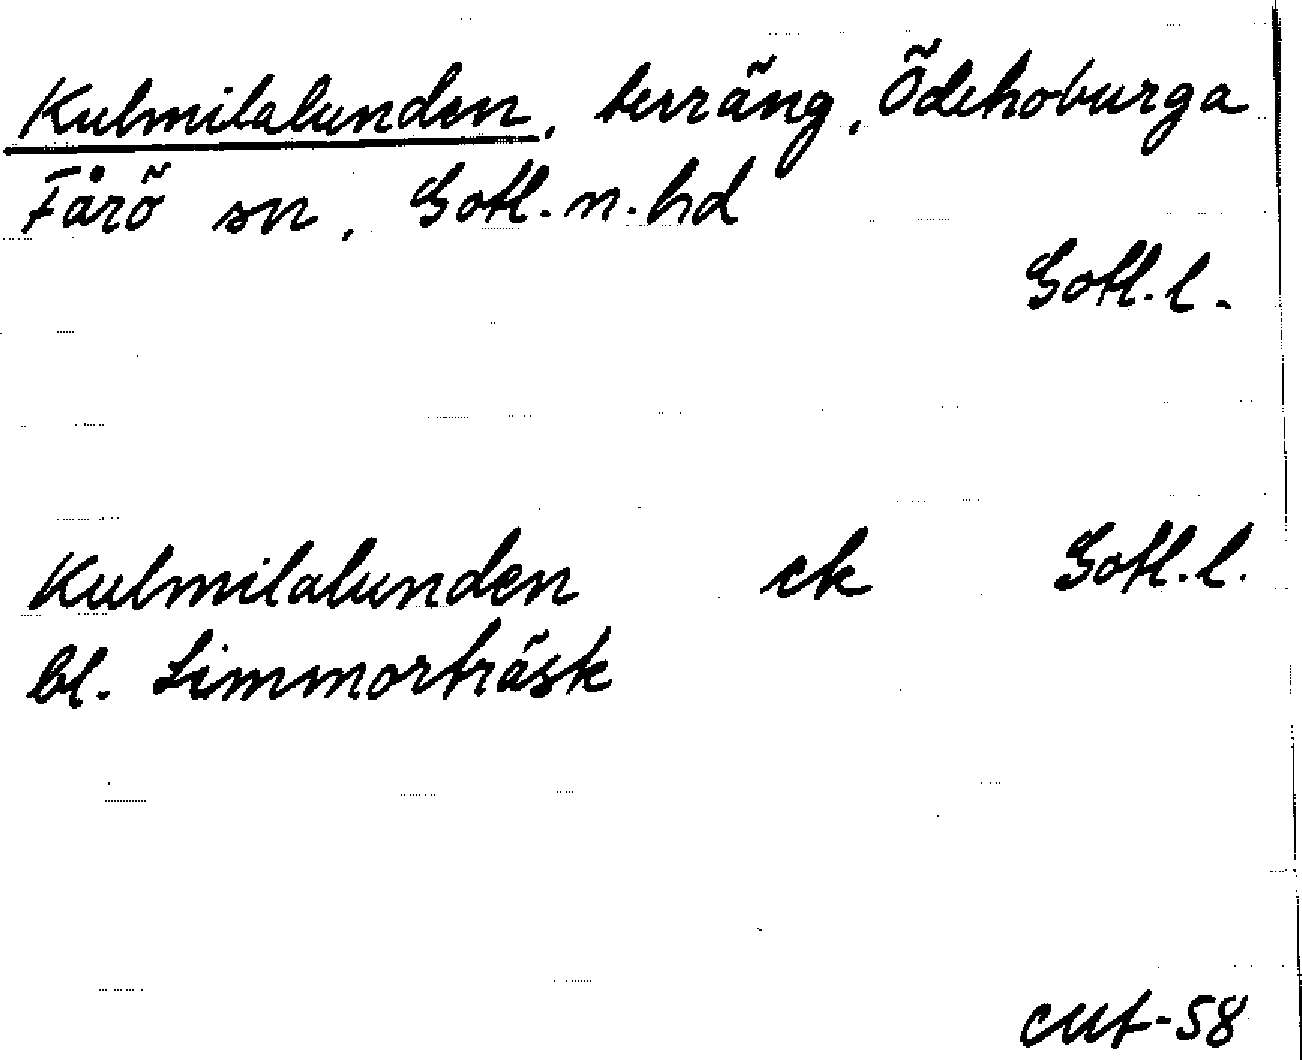 Kulmilalunden, terräng, Ödehoburga
Fårö sn, Gotl. n. hd
Gotl. l.
Kulmilalunden ek Gotl. l.
bl. Limmorträsk
CUF-58